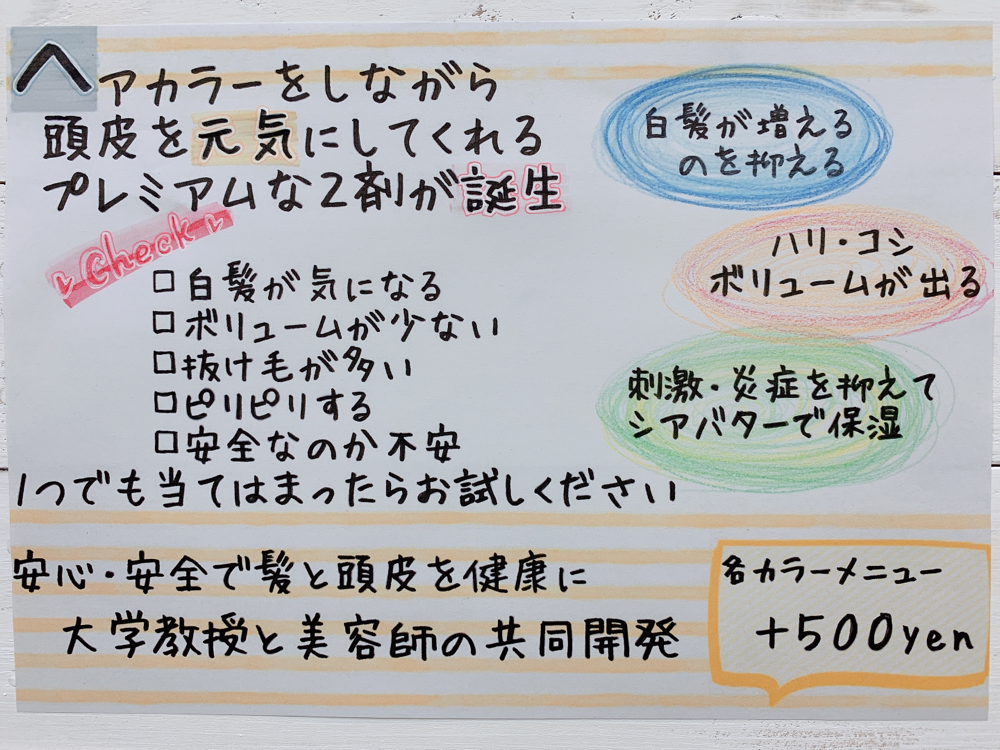 ヘアカラーをしながら
頭皮を元気にしてくれる
プレミアムな2剤が誕生
白髪が増える
のを抑える
ハリ・コシ
ボリュームが出る
刺激・炎症を抑えて
シアバターで保湿
Check
□白髪が気になる
□ボリュームが少ない
□抜け毛が多い
□ピリピリする
□安全なのか不安
1つでも当てはまったらお試しください
安心・安全で髪と頭皮を健康に
大学教授と美容師の共同開発
各カラーメニュー
+500yen